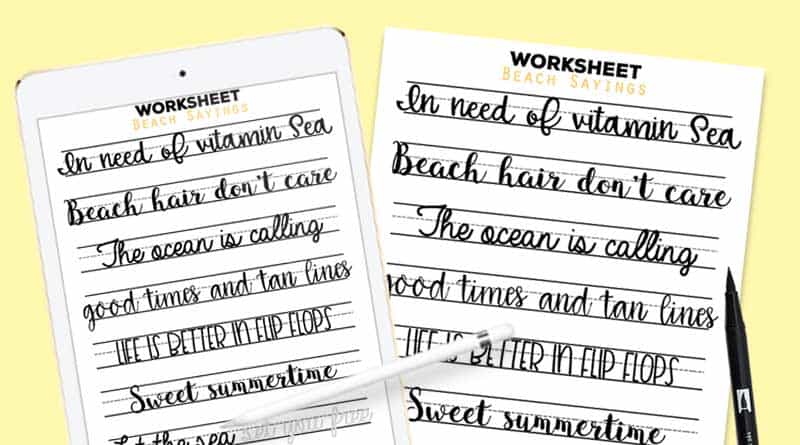 WORKSHEET
BEACH SAYINGS
In need of vitamin Sea
Beach hair don't care
The ocean is calling
good times and tan lines
LIFE IS BETTER IN FLIP FLOPS
Sweet summertime
Let the sea set you free
WORKSHEET
BEACH SAYINGS
In need of vitamin Sea
Beach hair don't care
The ocean is calling
good times and tan lines
LIFE IS BETTER IN FLIP FLOPS
Sweet summertime